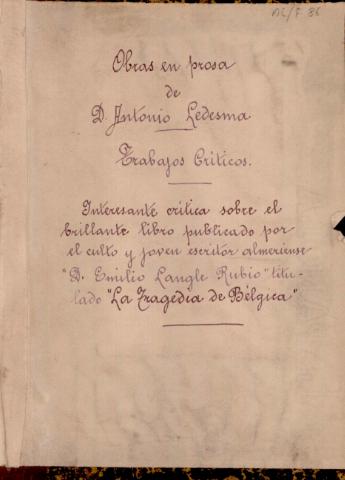 AL/F 86
Obras en prosa
de
D. Antonio Ledesma
Trabajos Criticos.
Interesante critica sobre el
brillante libro publicado por
el culto y joven escritor almeriense
"D. Emilio Langle Rubio" titu-
lado "La Tragedia de Bélgica"